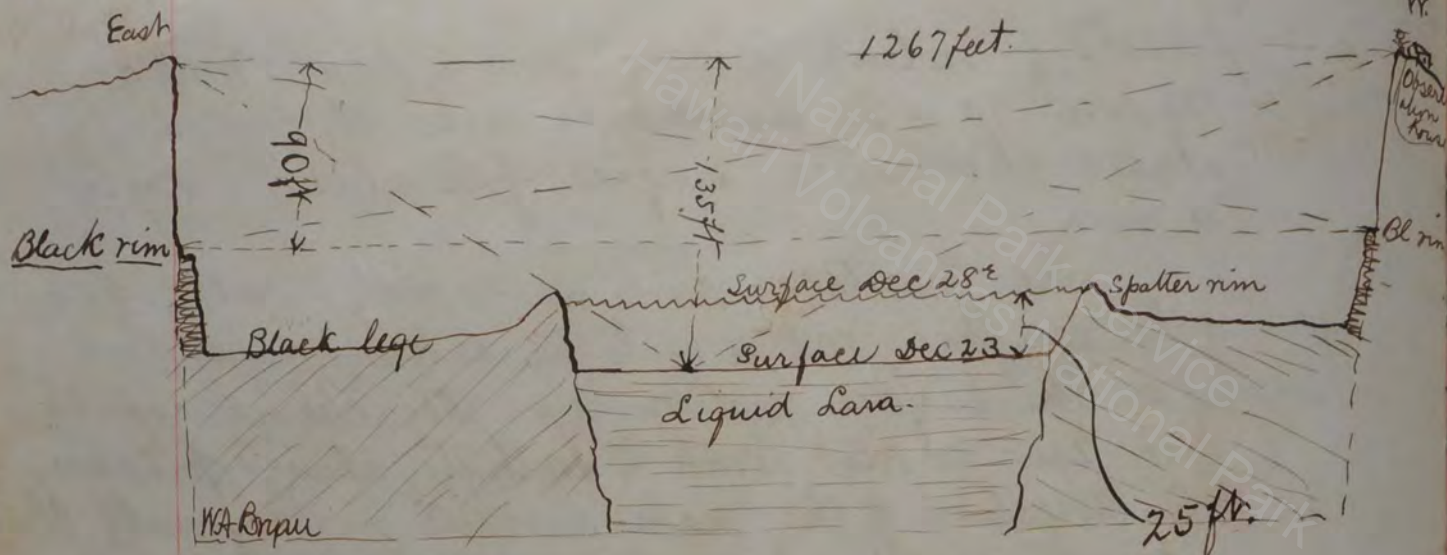 East
W.
1267 feet.
Observ
ation
House
90 ft
135 ft
Black rim
Bl rim
Surface Dec 28
Spatter rim
Black lege
Surface Dec 23
Liquid Lava.
25 ft.
National Park Service
Hawai'i Volcanoes National Park